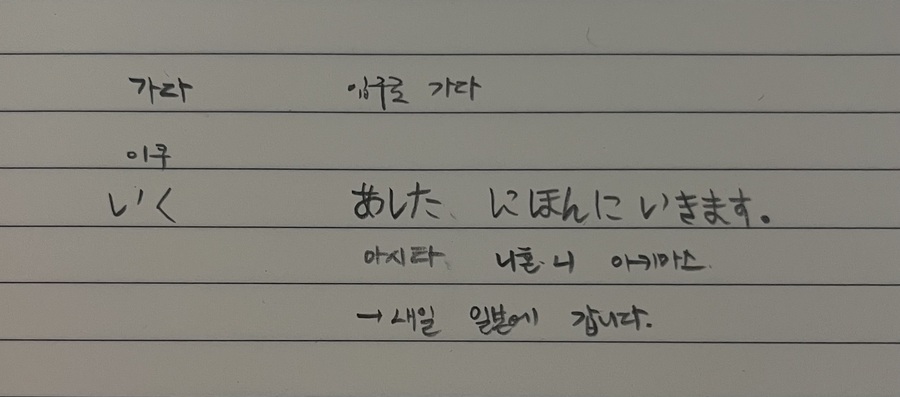 가다 입구로 가다
이쿠
いく あした、にほんに いきます。
아시타 니혼니 아키마스.
→ 내일 일본에 갑니다.